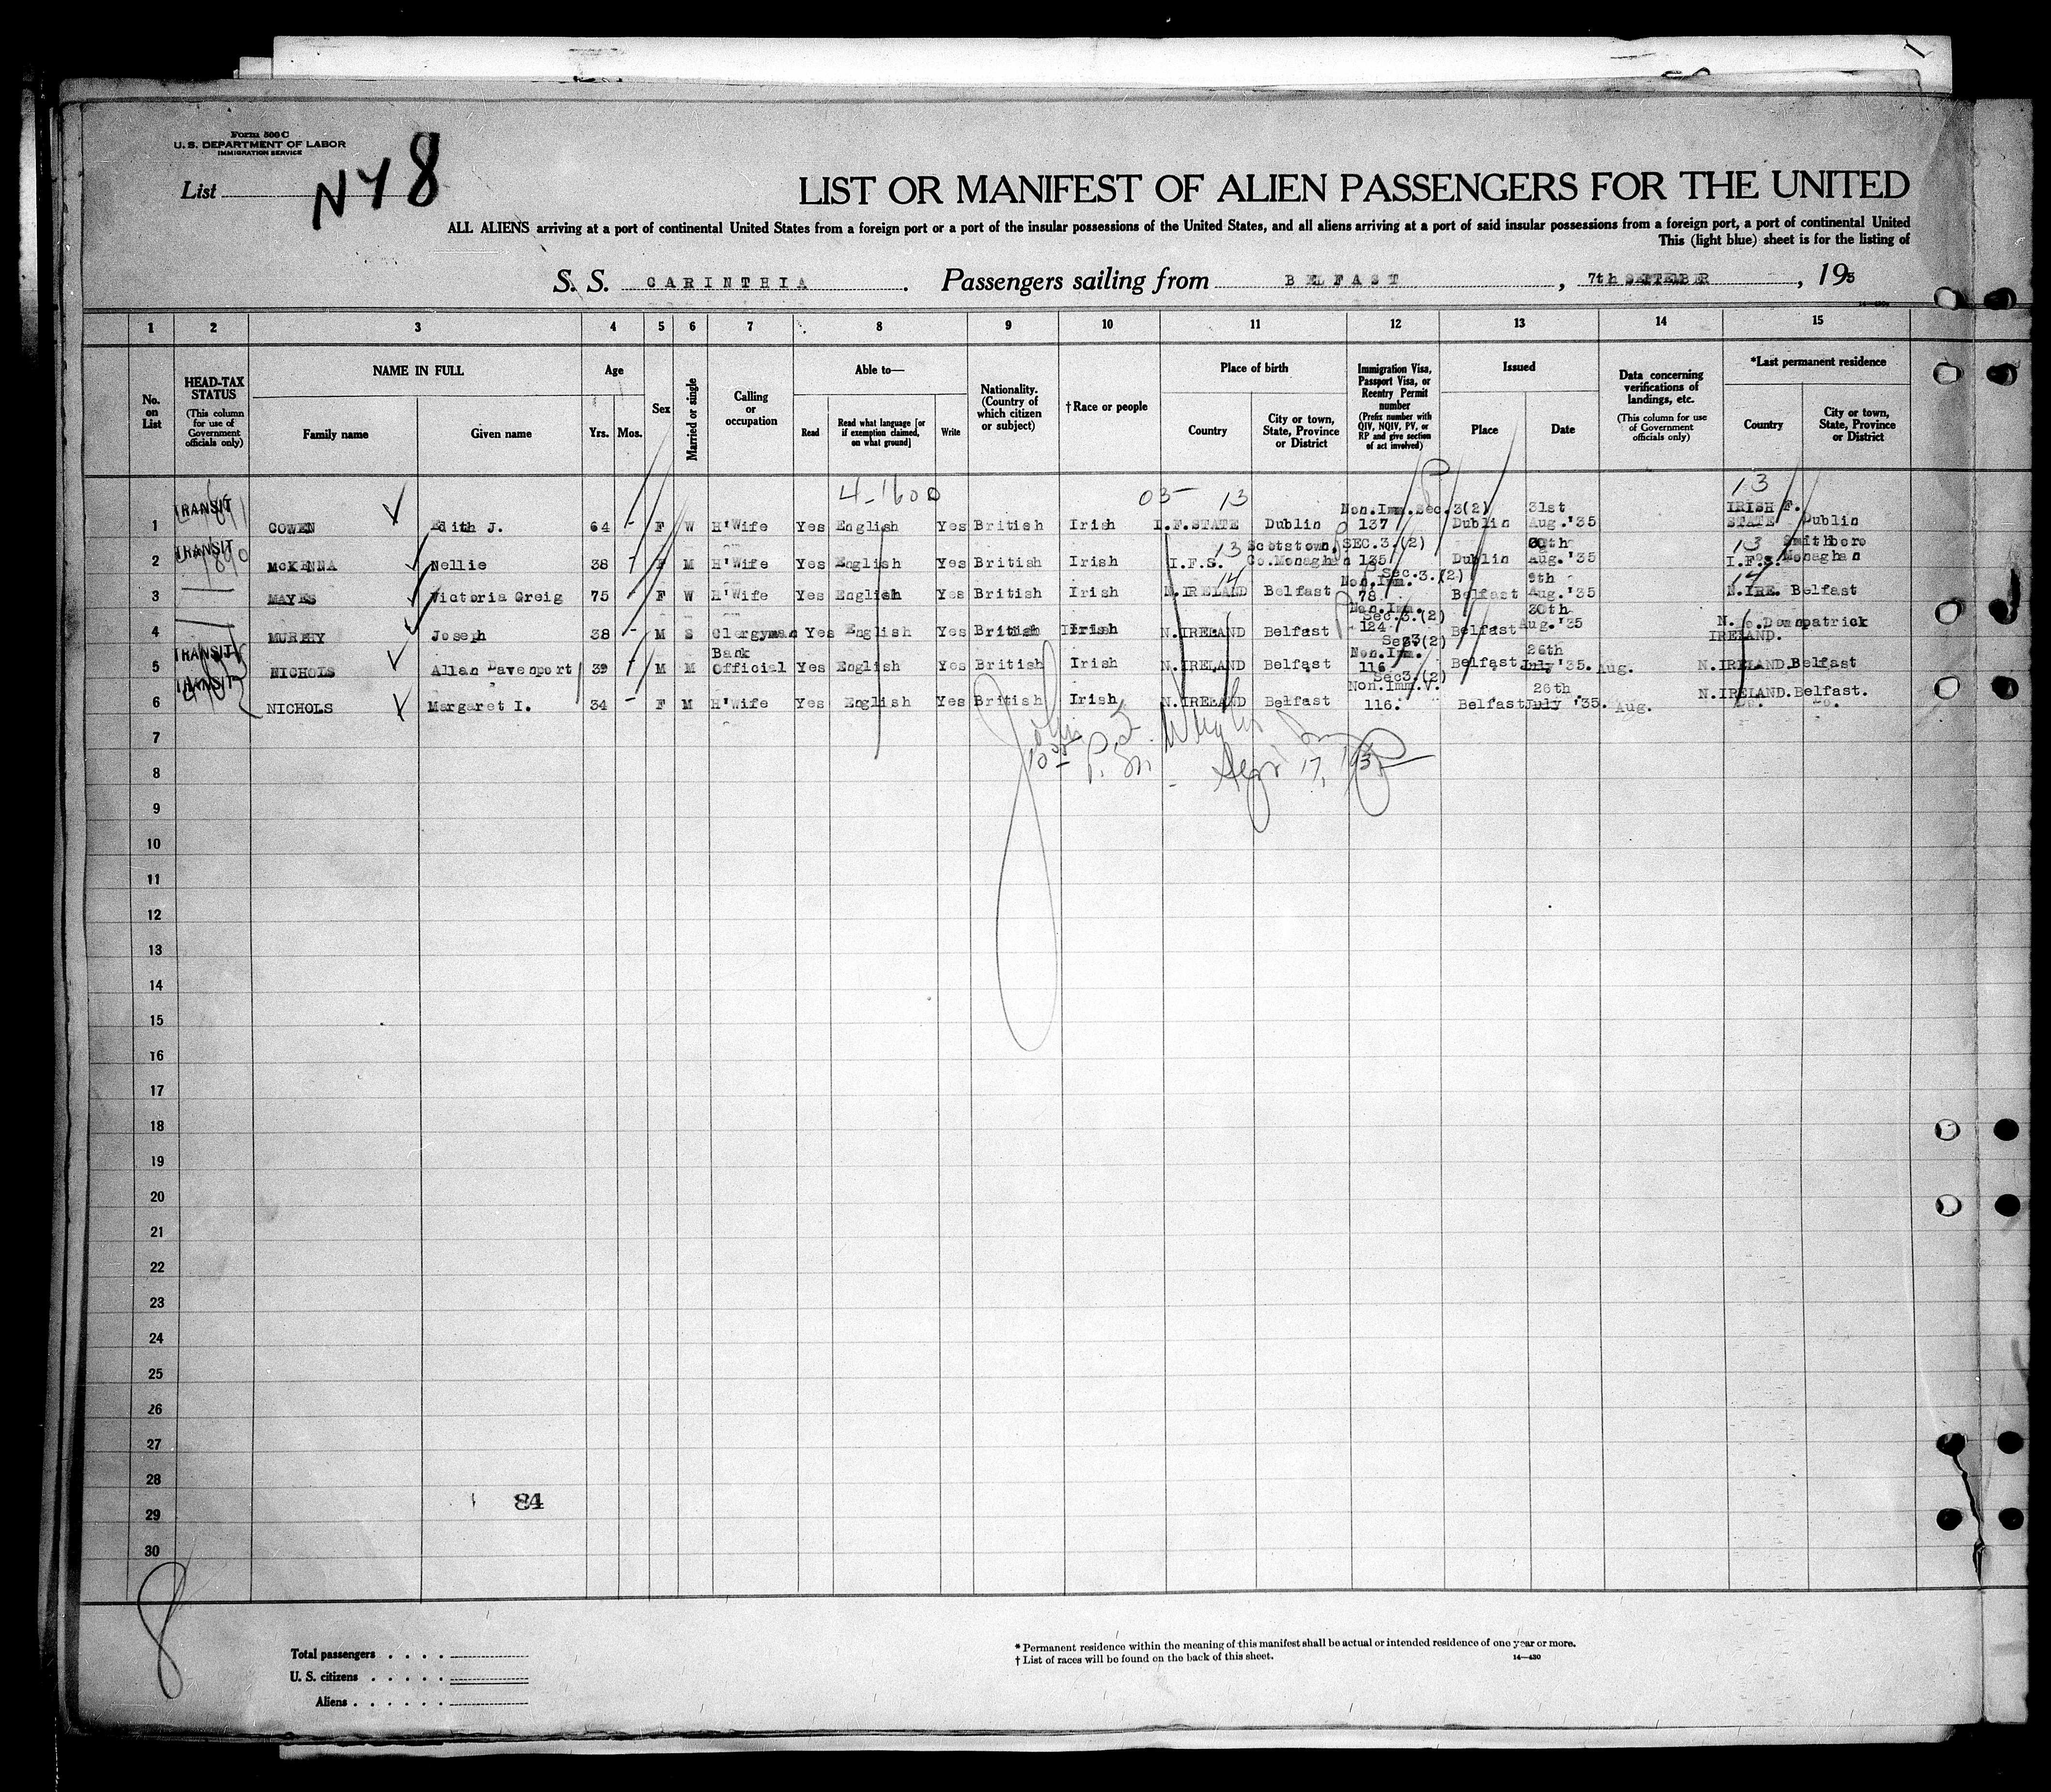 Form 500 C
U. S. DEPARTMENT OF LABOR
IMMIGRATION SERVICE
List
NY 8
LIST OR MANIFEST OF ALIEN PASSENGERS FOR THE UNITED
ALL ALIENS arriving at a port of continental United States from a foreign port or a port of the insular possessions of the United States, and all aliens arriving at a port of said insular possessions from a foreign port, a port of continental United
This (light blue) sheet is for the listing of
S. S. CARINTHIA. Passengers sailing from BELFAST, 7th SEPTEMBER, 19 5
14—430
1 2 3 4 5 6 7 8 9 10 11 12 13 14 15
No. on List
HEAD-TAX STATUS
(This column for use of Government officials only)
NAME IN FULL
Family name
Given name
Age
Yrs.
Mos.
Sex
Married or single
Calling or occupation
Able to—
Read
Read what language [or if exemption claimed, on what ground]
Write
Nationality. (Country of which citizen or subject)
†Race or people
Place of birth
Country
City or town, State, Province or District
Immigration Visa, Passport Visa, or Reentry Permit number
(Prefix number with QIV, NQIV, PV, or RP and give section of act involved)
Issued
Place
Date
Data concerning verifications of landings, etc.
(This column for use of Government officials only)
*Last permanent residence
Country
City or town, State, Province or District
4-1600 05 13 13
TRANSIT Non.Imm.Sec.3(2) 31st IRISH F.
1 COWEN Edith J. 64 - F W H'Wife Yes English Yes British Irish I.F.STATE Dublin 137 Dublin Aug.'35 STATE Dublin
TRANSIT 13 Scotstown, SEC.3.(2) 30th 13 Smithboro
2 McKENNA Nellie 38 F M H'Wife Yes English Yes British Irish I.F.S. Co.Monaghan 135 Dublin Aug.'35 I.F.S. Monaghan
14 Non.Imm. Sec.3.(2) 9th 14
3 MAYES Victoria Greig 75 F W H'Wife Yes English Yes British Irish N.IRELAND Belfast 78. Belfast Aug.'35 N.IRE. Belfast
Non.Imm. Sec.3.(2) 30th
4 MURPHY Joseph 38 - M S Clergyman Yes English Yes British Irish N.IRELAND Belfast 124 Belfast Aug.'35 N. IRELAND. Co.Downpatrick
TRANSIT Bank Sec3(2) Non.Imm. 26th
5 NICHOLS Allan Davenport 39 M M Official Yes English Yes British Irish N.IRELAND Belfast 116 Belfast July'35. Aug. N.IRELAND. Belfast
TRANSIT Sec3.(2) Non.Imm.V. 26th
6 NICHOLS Margaret I. 34 - F M H'Wife Yes English Yes British Irish N.IRELAND Belfast 116. Belfast July '35. Aug. N.IRELAND. Belfast.
Do. Do.
7
John
P. M. Sept 17,
8
9
10
11
12
13
14
15
16
17
18
19
20
21
22
23
24
25
26
27
28
84
29
30
8
Total passengers
U. S. citizens
Aliens
* Permanent residence within the meaning of this manifest shall be actual or intended residence of one year or more.
† List of races will be found on the back of this sheet. 14—430